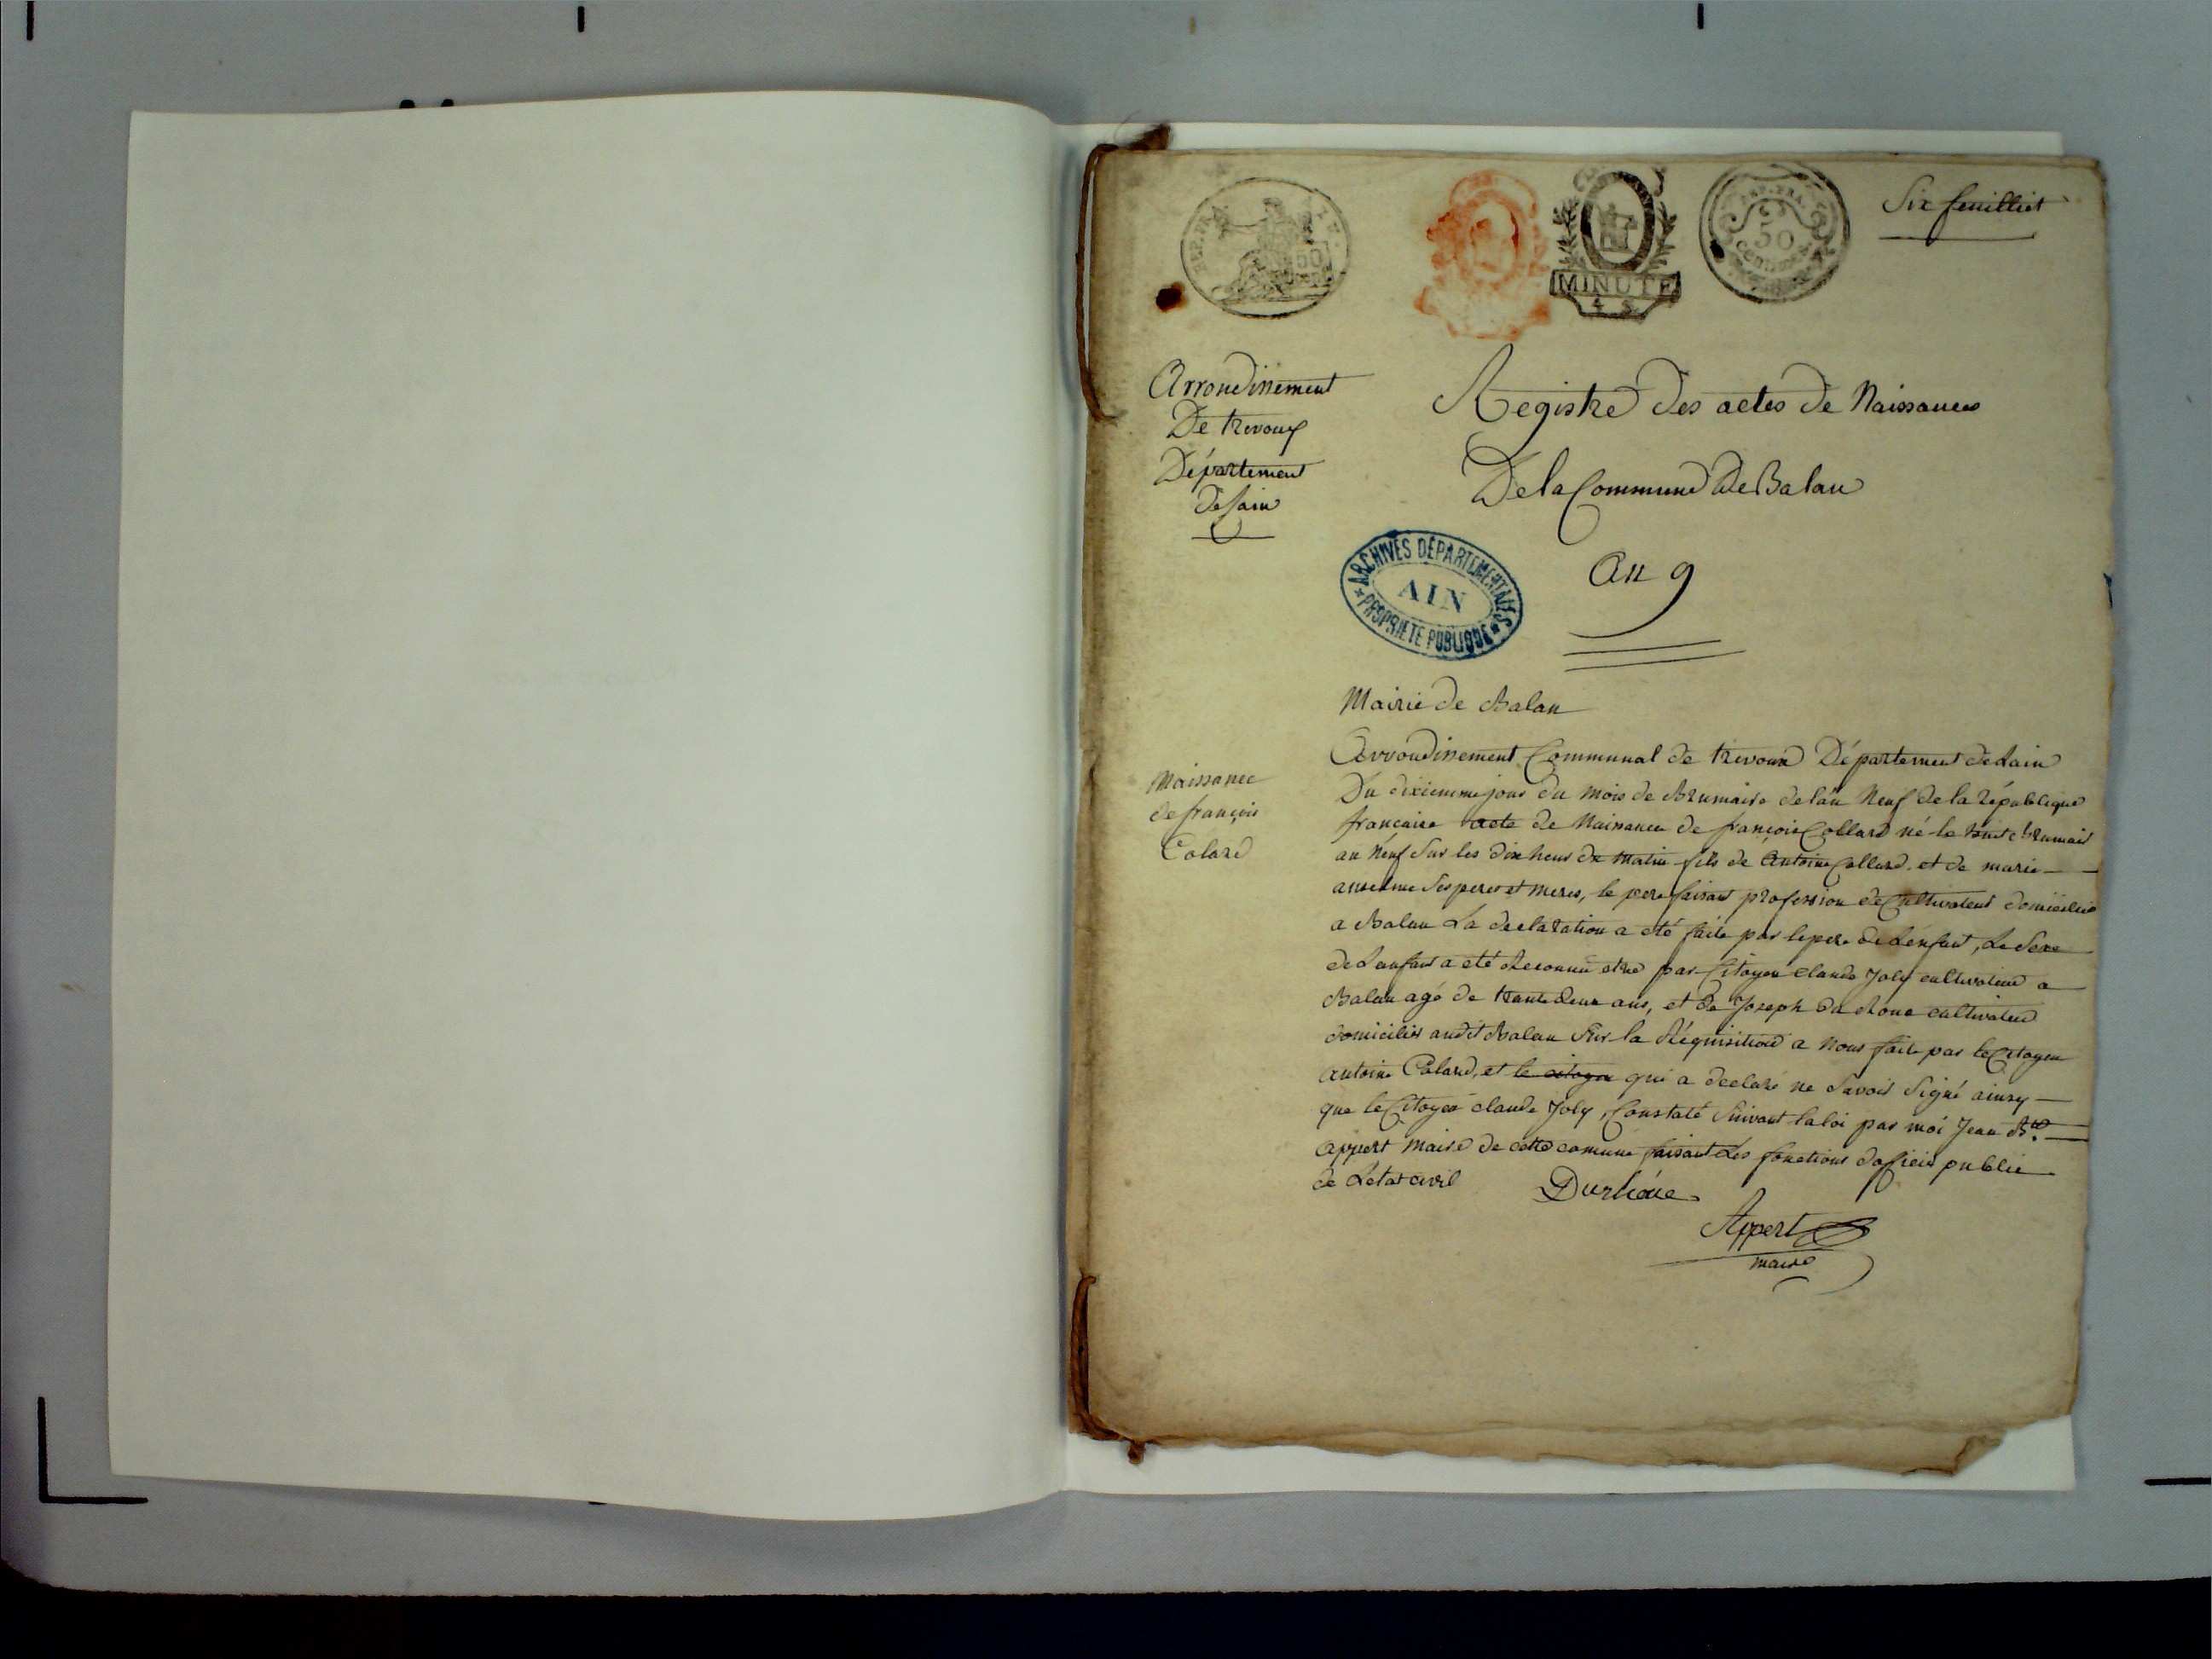 Six feuilliet
REP. FRA.
50
MINUTE
REP. FRA.
50
Centimes
Arrondissement
De trevoux
Département
de lain
Registre des actes de Naissances
De la Commune De Balan
An 9
ARCHIVES DÉPARTEMENTALES
AIN
PROPRIÉTÉ PUBLIQUE
Mairie de Balan
Naissance
de françois
Colard
Arrondissement Communal de trevoux Département de Lain
Du dixiemme jour du mois de Brumaire de lan Neuf de la république
francaise acte de Naissance de françois Collard né le brumair
an Neuf sur les dix heur du matin fils de Antoine Collard et de marie
anselme ses peres et meres, le pere faisant profession de Cultivateur domicilié
a Balan La declaration a eté faite par le pere de Lenfant, Le Sexe
de Lenfant a eté Reconnu etre par Citoyen Claude Joly cultivateur a
Balan agé de trante deux ans, et de Joseph du Roue cultivateur
domiciliés audit Balan Sur la Réquisition a Nous faite par le Citoyen
antoine Colard, et le citoyen qui a declaré ne Savoir Signé ainsy
que le Citoyen claude Joly, Constaté Suivant la loi par moi Jean Bte
appert Maire de cette comune faisant Les fonctions dofficier public
de Létat civil
Durhóne
Appert
maire